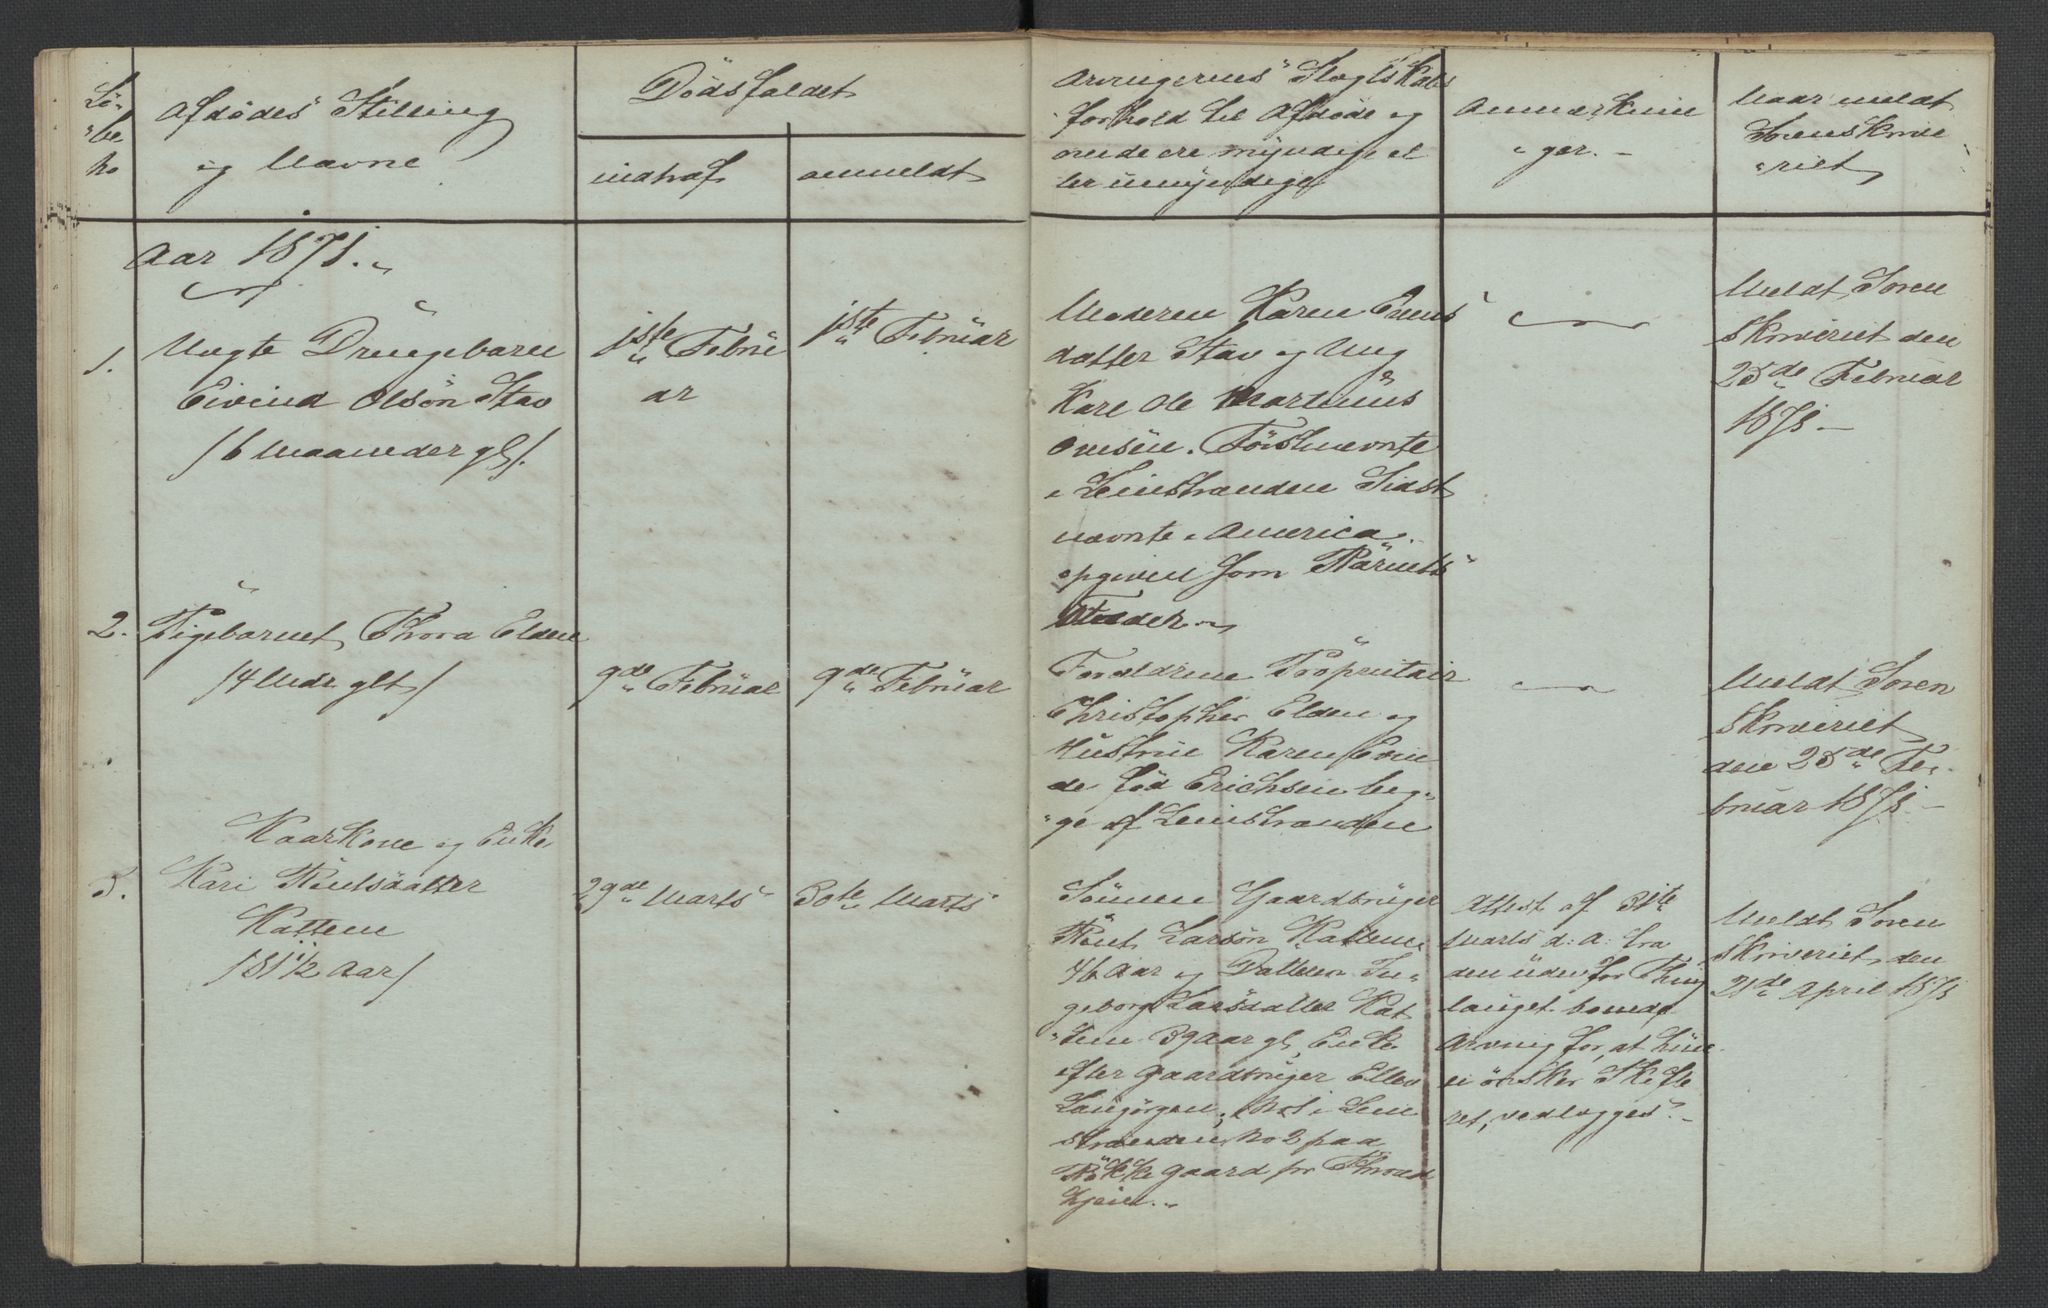 Lö-
be
No
Afdödes Stilling
og Navne
Dödsfaldet
indtraf
anmeldt
Arvingernes Slægtskabs
forhold til Afdöde og
om de ere myndige el
ler umyndige
Anmærknin
ger. -
Naar meldt
Sorenskrive
riet
Aar 1875.
1.
Uægte Drengebarn
Eivind Olsön Stav
/6 Maaneder gl/.
1ste Febru
ar
1ste Februar
Moderen Karen
datter Stav og Ung
Karl Ole Martinus
Förstnevnte
i Leinstranden Sidst
nævnte i America.
opgiven som Barnets
Fader
Meldt Soren
skriveriet den
25de Februar
1875 -
2.
Pigebarnet Thora Elden
/4 Mdr glt/
9de Februar
9de Februar
Forældrene Proprietair
Christopher Elden og
Hustrue Karen
föd Erichsen beg-
ge af Leinstranden
Meldt Soren
skriveriet
den 25de Fe-
bruar 1875 -
3.
Kaarkone og Enke
Kari Knutsdatter
Kattem
/81 1/2 Aar/
29de Marts
30te Marts
Sönnen Gaardbruger
Knut Larsön Kattem
46 Aar og Datteren In-
geborg Larsdatter Kat
tem 39 Aar gl, Enke
efter Gaardbruger Ellev
i Lein
stranden, No 2 paa
gaard for Thrond
hjem. -
Attest af 31te
Marts d: A: fra
den uden for Thing
lauget boende
Arving for, at hun
ei önsker Skifte
ret, vedlægges. -
Meldt Soren
skriveriet den
21de April 1875